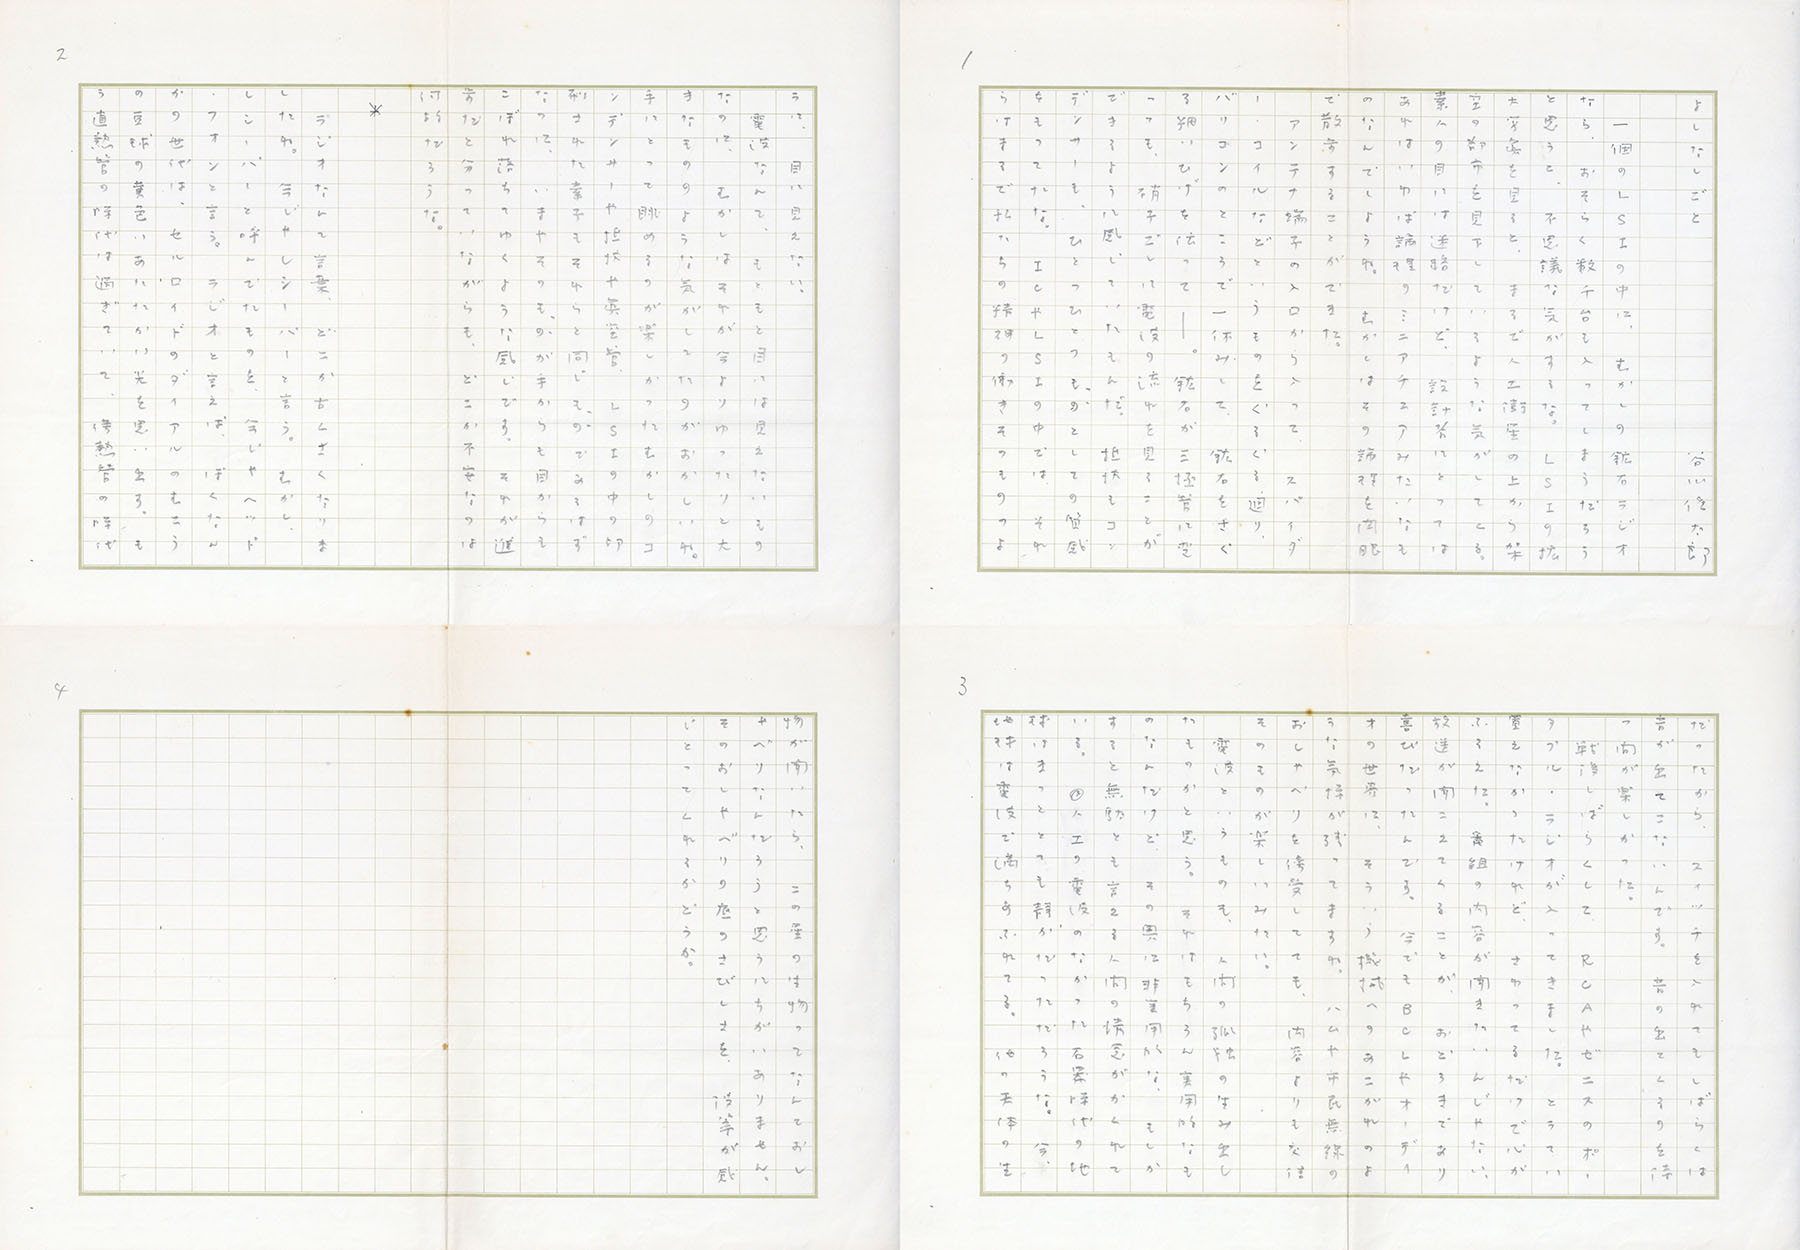 1
よしなしごと　谷川俊太郎
一個のLSIの中に、むかしの鉱石ラジオ
なら、おそらく数千台も入ってしまうだろう
と思うと、不思議な気がするな。LSIの拡
大写真を見ると、まるで人工衛星の上から架
空の都市を見下しているような気がしてくる。
素人の目には迷路だけど、設計者にとっては
あれはいわば論理のミニアチュアみたいなも
のなんでしょうね。むかしはその論理を肉眼
で散歩することができた。
アンテナ端子の入口から入って、スパイダ
ー・コイルなどというものをぐるぐる廻り、
バリコンのところで一休みして、鉱石をさぐ
る細いひげを伝って——。鉱石が三極管に変
っても、硝子ごしに電波の流れを見ることが
できるように感じていたもんだ。抵抗もコン
デンサーも、ひとつひとつものとしての質感
をもってたな。ICやLSIの中では、それ
らはまるで私たちの精神の働きそのもののよ
2
うに、目に見えない。
電波なんて、もともと目には見えないもの
なのに、むかしはそれが今よりゆったりと大
きなもののような気がしてたのがおかしいね。
手にとって眺めるのが楽しかったむかしのコ
ンデンサーや抵抗や真空管、LSIの中の印
刷された素子もそれらと同じものであるはず
なのに、いまやそのものが手からも目からも
こぼれ落ちてゆくような感じです。それが進
歩だと分っていながらも、どこか不安なのは
何故だろうな。
*
ラジオなんて言葉、どこか古くさくなりま
したね。今じゃレシーバーと言う。むかし、
レシーバーと呼んでたものを、今じゃヘッド
・フォンと言う。ラジオと言えば、ぼくなん
かの世代は、セルロイドのダイアルのむこう
の豆球の黄色いあたたかい光を思い出す。も
う直熱管の時代は過ぎていて、傍熱管の時代
3
だったから、スイッチを入れてもしばらくは
音が出てこないんです。音の出てくるのを待
つ間が楽しかった。
戦後しばらくして、RCAやゼニスのポー
タブル・ラジオが入ってきました。とうてい
買えなかったけれど、さわってるだけで心が
ふるえた。番組の内容が聞きたいんじゃない、
放送が聞こえてくることが、おどろきであり
喜びだったんです。今でもBCLやオーディ
オの世界に、そういう機械へのあこがれのよ
うな気持が残ってますね。ハムや市民無線の
おしゃべりを傍受してても、内容よりも交信
そのものが楽しいみたい。
電波というものも、人間の孤独の生み出し
たものかと思う。それはもちろん実用的なも
のなんだけど、その奥に非実用的な、もしか
すると無駄とも言える人間の情念がかくれて
いる。人工の電波のなかった石器時代の地
球はきっととても静かだっただろうな。今、
地球は電波で満ちあふれてる。他の天体の生
4
物が聞いたら、この星の生物ってなんておし
ゃべりなんだろうと思うにちがいありません。
そのおしゃべりの底のさびしさを、彼等が感
じとってくれるかどうか。